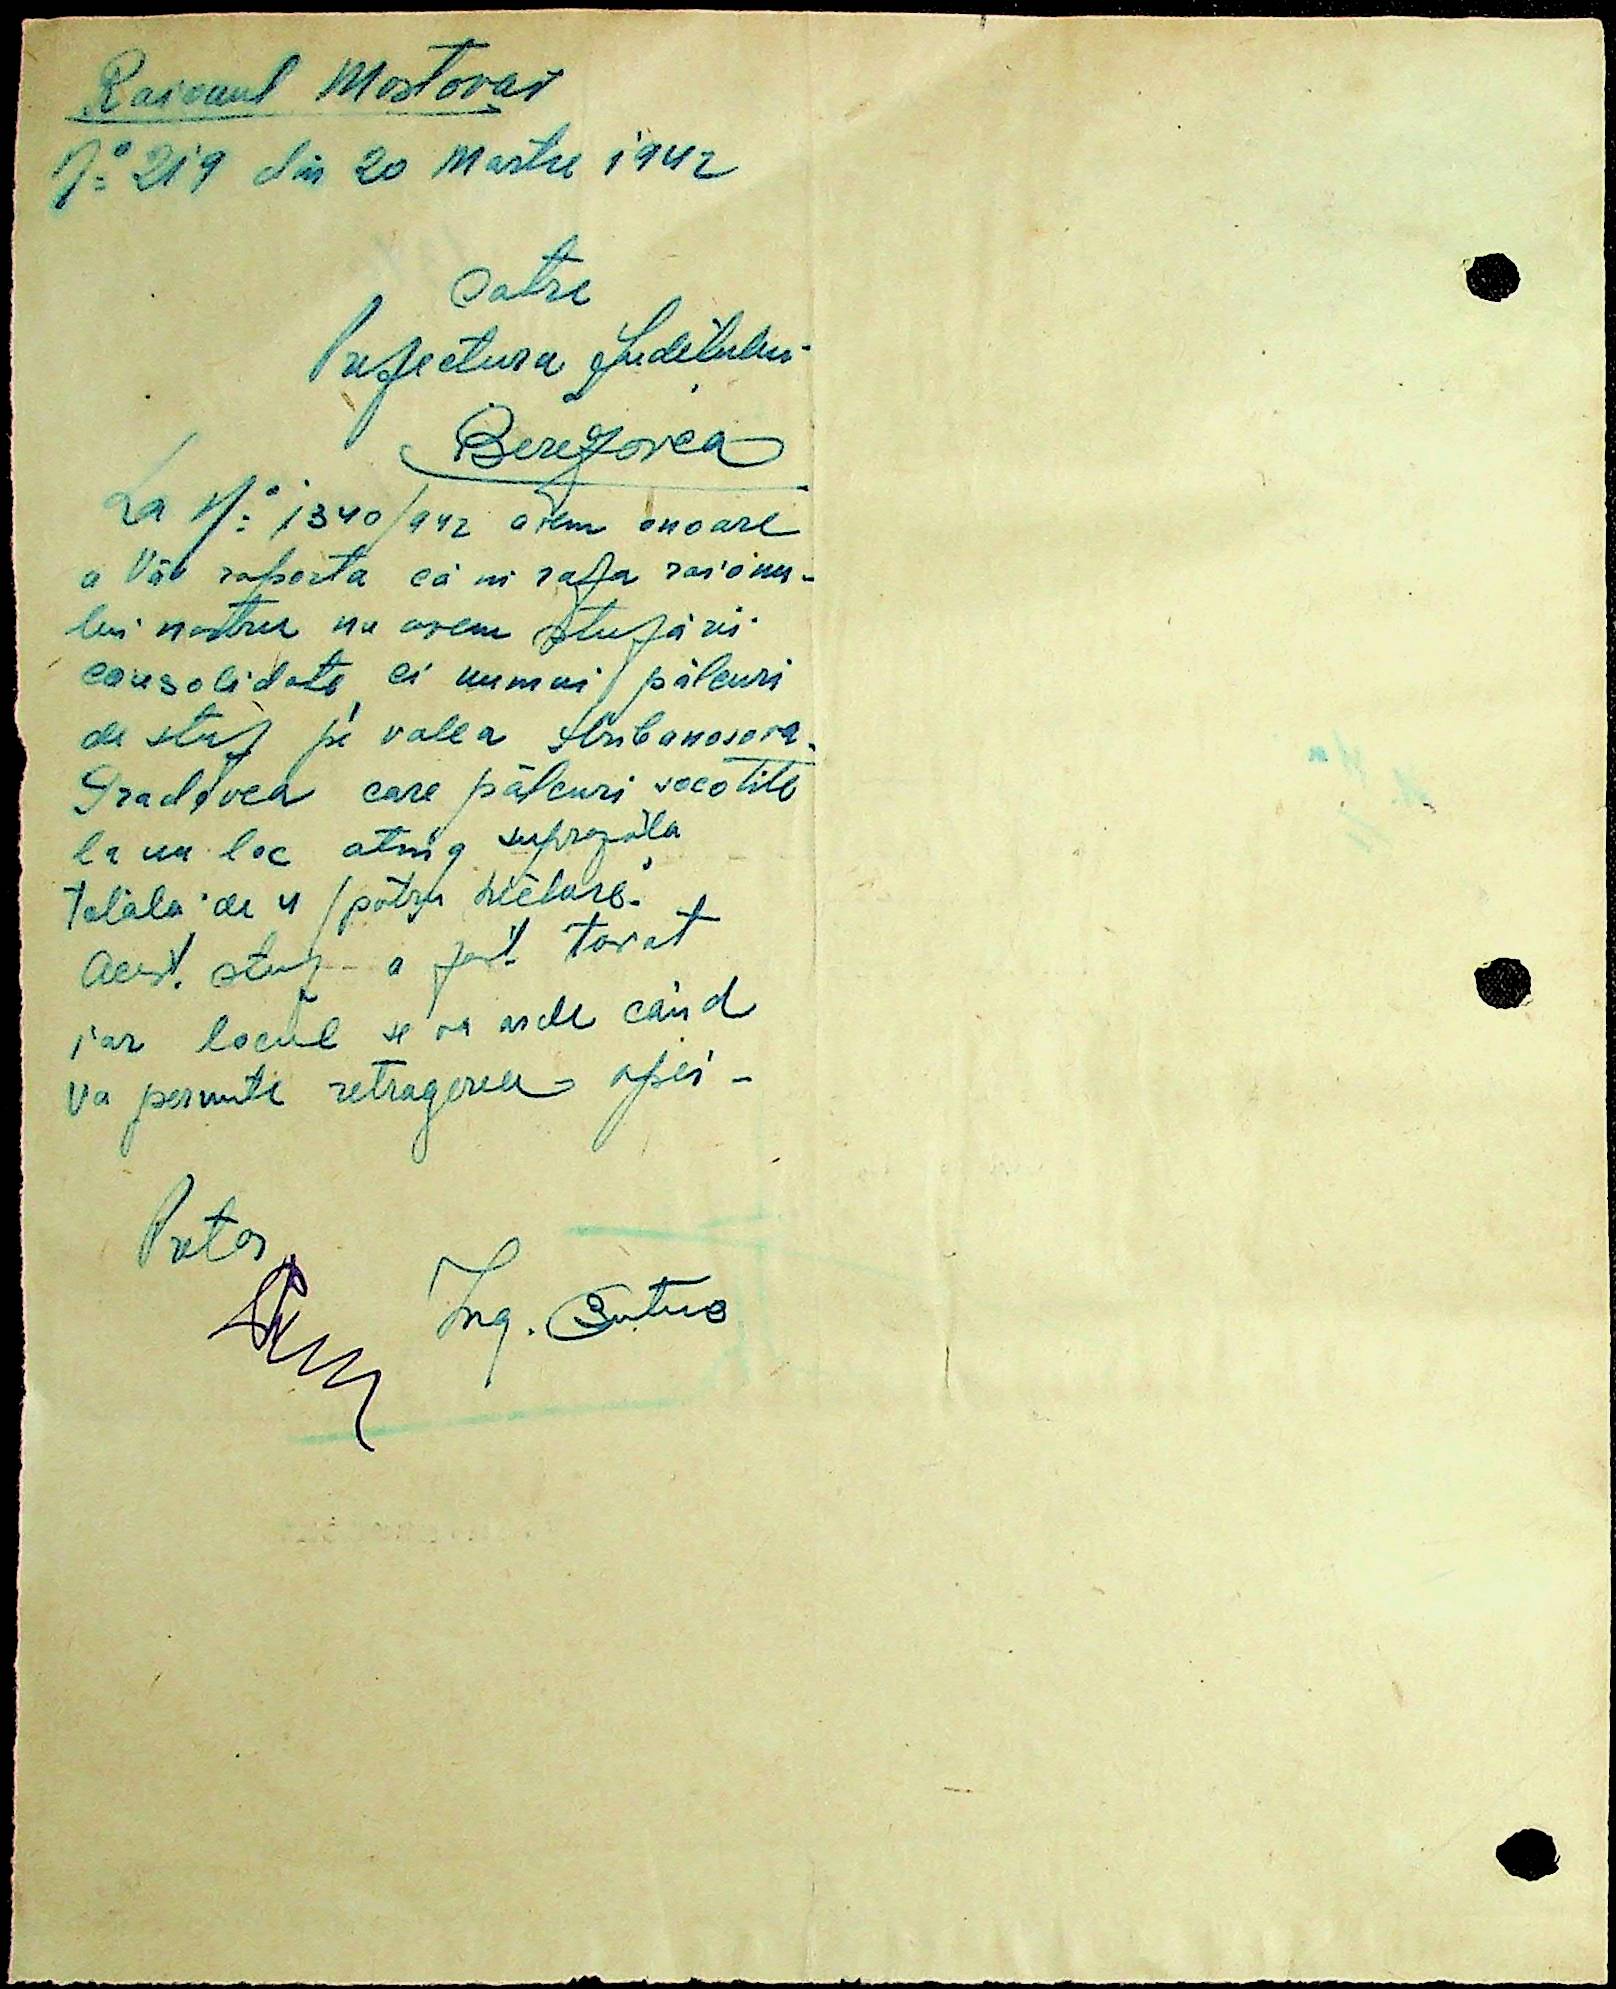 Raionul Mostovai
No 219 din 20 Martie 1942
Catre
Prefectura Judetului
Berezovca
La No 1340/942 avem onoare
a Vă raporta că în raza raionu-
lui nostru nu avem stufării
consolidate, ci numai pâlcuri
de stuf pe valea
Gradovca care pâlcuri socotite
la un loc ating suprafața
totala de 4 /patru hectare.
Acest stuf a fost
iar locul se va arde când
va permite retragerea apei -
Pretor
Ing.